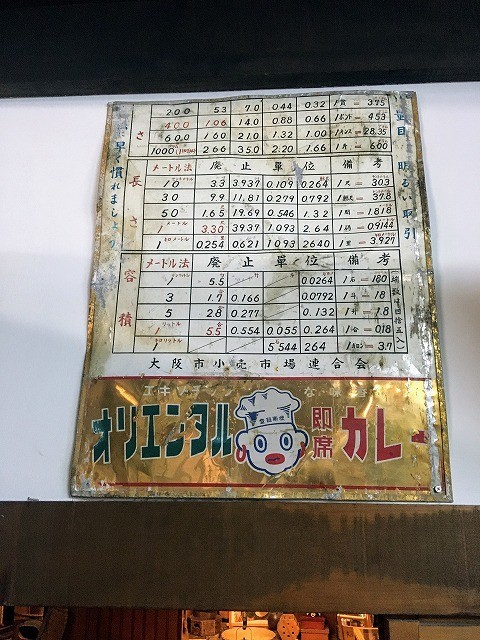 200 53 7.0 0.44 0.32 1貫= 3.75
400 1.06 14.0 0.88 0.66 1ポンド= 453
600 1.60 21.0 1.32 1.00 1オンス= 28.35
1000 266 35.0 2.20 1.66 1斤= 6.00
さ
量目 明るい取引
早く慣れましょう
長さ
メートル法 廃止單位 備考
10 3.3 3.937 0.109 0.264 1尺= 30.3
30 9.9 11.81 0.279 0.792 1鯨尺= 37.8
50 1.65 19.69 0.546 1.32 1間= 1.818
1 3.30 39.37 1.093 2.64 0.9144
1 0.254 0.621 1.093 2640 1里= 3.927
容積
メートル法 廃止單位 備考
1 5.5 0.0264 1石= 180
3 1.7 0.166 0.0792 1斗= 18
5 2.8 0.277 0.132 1升= 1.8
リットル 5.5 0.554 0.055 0.264 1合= 0.18
キロリットル 5.544 264 1ガロン= 3.7
端数は四捨五入
大阪市小売市場連合会
オリエンタル 即席 カレー
登録商標